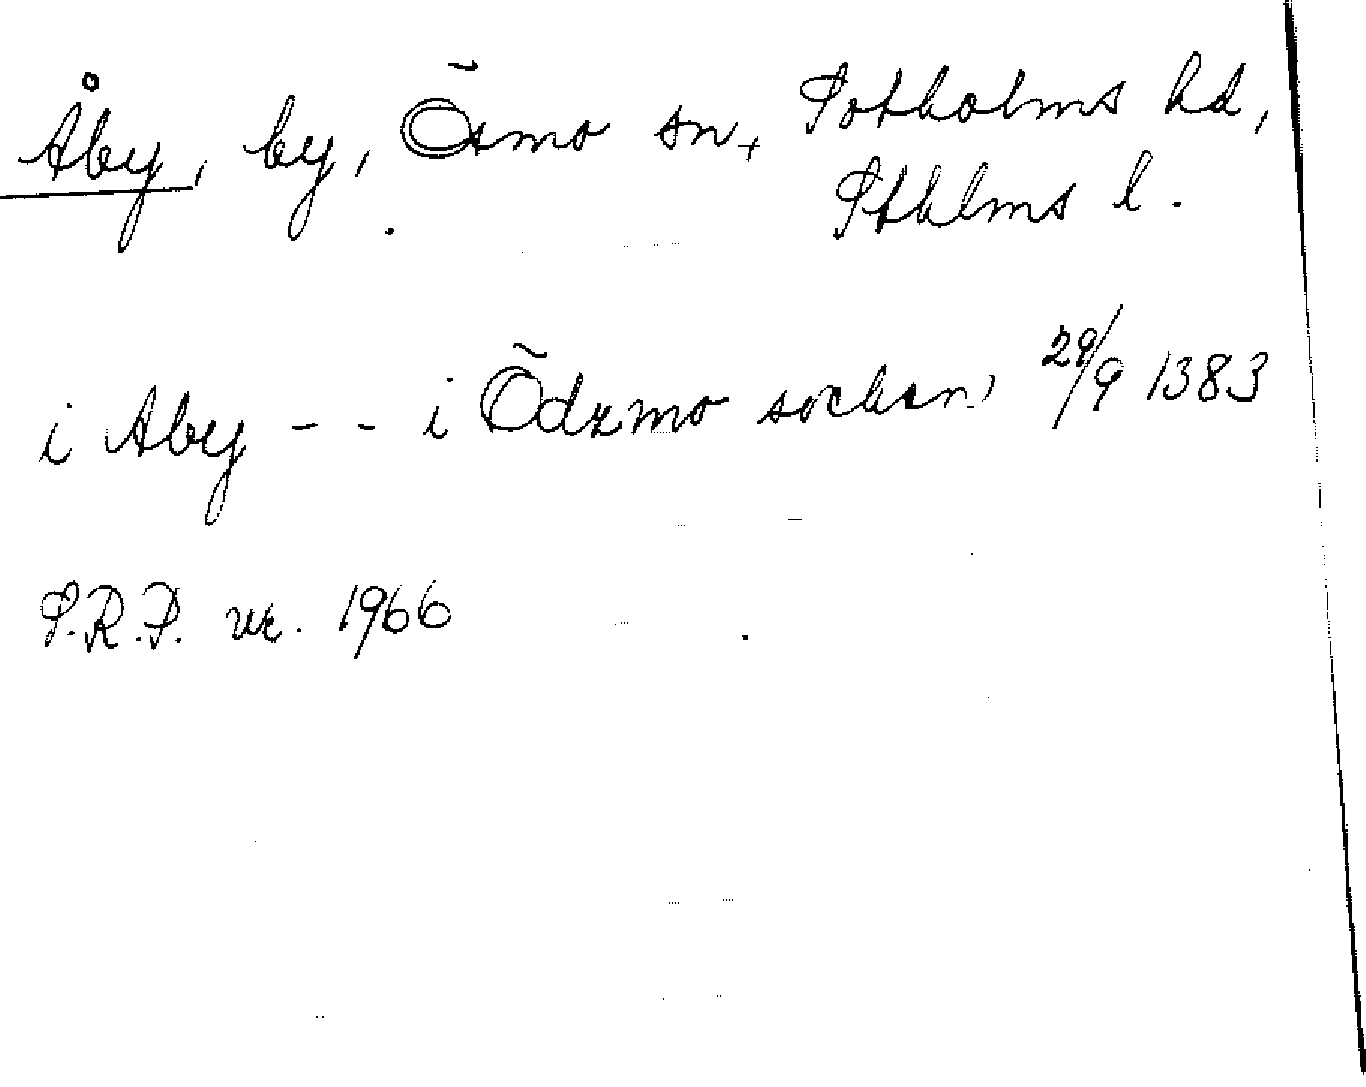 Åby, by, Ösmo sn, Sotholms hd,
Sthlms l.
i Aby - - i Ödzmo sochn 29/9 1383
S.R.P. nr. 1966